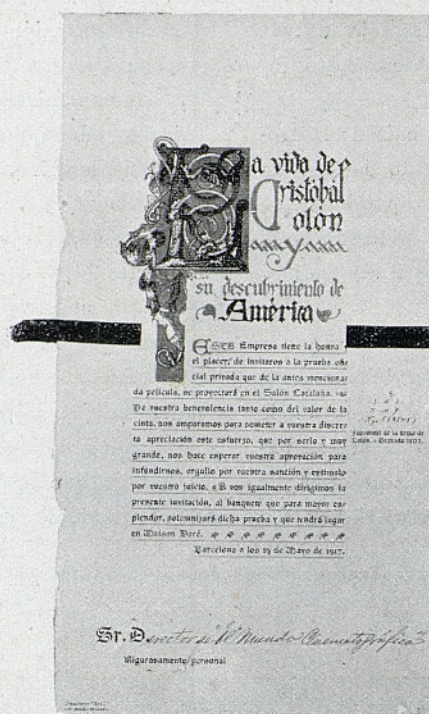 La vida de
Cristóbal
Colón
y
su descubrimiento de
América
ESTA Empresa tiene la honra y
el placer, de invitaros a la prueba ofi-
cial privada que de la antes menciona-
da película, se proyectará en el Salón Cataluña.
De vuestra benevolencia tanto como del valor de la
cinta, nos amparamos para someter a vuestra discre-
ta apreciación este esfuerzo, que por serio y muy
grande, nos hace esperar vuestra aprovación para
infundirnos, orgullo por vuestra sanción y estímulo
por vuestro juicio. A vos igualmente dirigimos la
presente invitación, al banquete que para mayor es-
plendor, solemnizará dicha prueba y que tendrá lugar
en Maison Doré.
Barcelona a los 19 de Mayo de 1917.
Facsímil de la firma de
Colón.
Sr. Director de "El Mundo Cinematográfico"
Rigurosamente personal